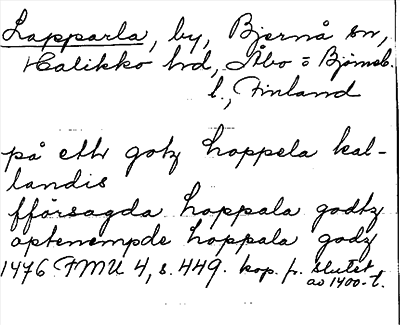 Lapparla, by, Bjernå sn,
Halikko hd, Åbo = Björneb.
l., Finland
på ettr gotz hoppela kal-
landis
fförsagda hoppala godtz
optenempde hoppala godz
1476 FMU 4, s. 449. kop. fr. slutet
av 1400-t.